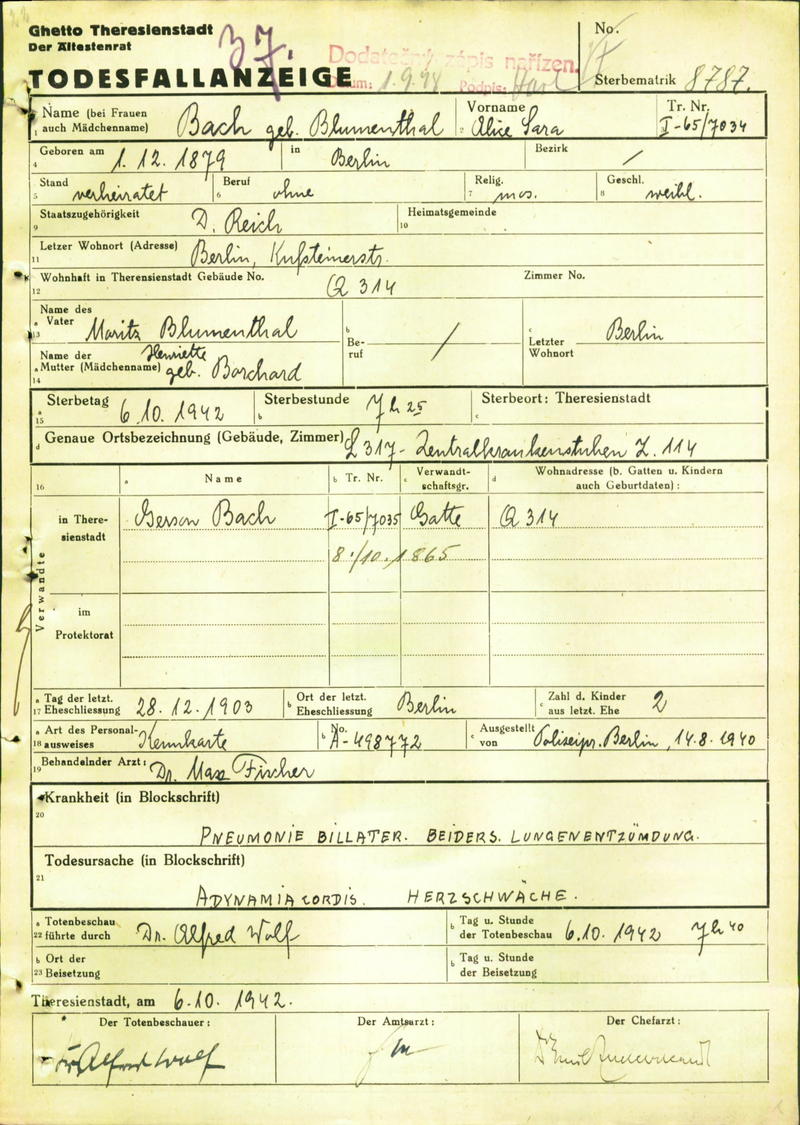 Ghetto Theresienstadt
Der Ältestenrat
37.
Dodatečný zápis nařízen.
Datum: 1.9.48 Podpis:
No.
TODESFALLANZEIGE
Sterbematrik 8787.
1 Name (bei Frauen auch Mädchenname) Bach geb. Blumenthal 2 Vorname Alice Sara Tr. Nr. I-65/7034
4 Geboren am 1. 12. 1879 in Berlin Bezirk /
5 Stand verheiratet 6 Beruf ohne 7 Relig. mos. 8 Geschl. weibl.
9 Staatszugehörigkeit D. Reich 10 Heimatsgemeinde
11 Letzer Wohnort (Adresse) Berlin, Kufsteinerstr.
12 Wohnhaft in Therensienstadt Gebäude No. Q 314 Zimmer No.
13 a Name des Vater Moritz Blumenthal b Beruf / c Letzter Wohnort Berlin
14 a Name der Mutter (Mädchenname) Henriette geb. Borchard
15 a Sterbetag 6.10. 1942 b Sterbestunde 7 h 25 c Sterbeort: Theresienstadt
d Genaue Ortsbezeichnung (Gebäude, Zimmer) L 317 - Zentralkrankenstuben Z. 114
16 a Name b Tr. Nr. c Verwandtschaftsgr. d Wohnadresse (b. Gatten u. Kindern auch Geburtdaten) :
Verwandte
in Theresienstadt Gerson Bach I-65/7035 Gatte Q 314
8./10. 1865
im Protektorat
17 a Tag der letzt. Eheschliessung 28.12.1903 b Ort der letzt. Eheschliessung Berlin c Zahl d. Kinder aus letzt. Ehe 2
18 a Art des Personalausweises Kennkarte b No. A-498772 c Ausgestellt von Polizeipr. Berlin, 14.8.1940
19 Behandelnder Arzt: Dr. Max Fischer
Krankheit (in Blockschrift)
20 PNEUMONIE BILLATER. BEIDERS. LUNGENENTZÜMDUNG.
Todesursache (in Blockschrift)
21 ADYNAMIA CORDIS. HERZSCHWÄCHE.
22 a Totenbeschau führte durch Dr. Alfred Wolf b Tag u. Stunde der Totenbeschau 6.10. 1942 7 h 40
23 b Ort der Beisetzung b Tag u. Stunde der Beisetzung
Theresienstadt, am 6.10. 1942.
Der Totenbeschauer: Der Amtsarzt: Der Chefarzt:
Dr. Alfred Wolf